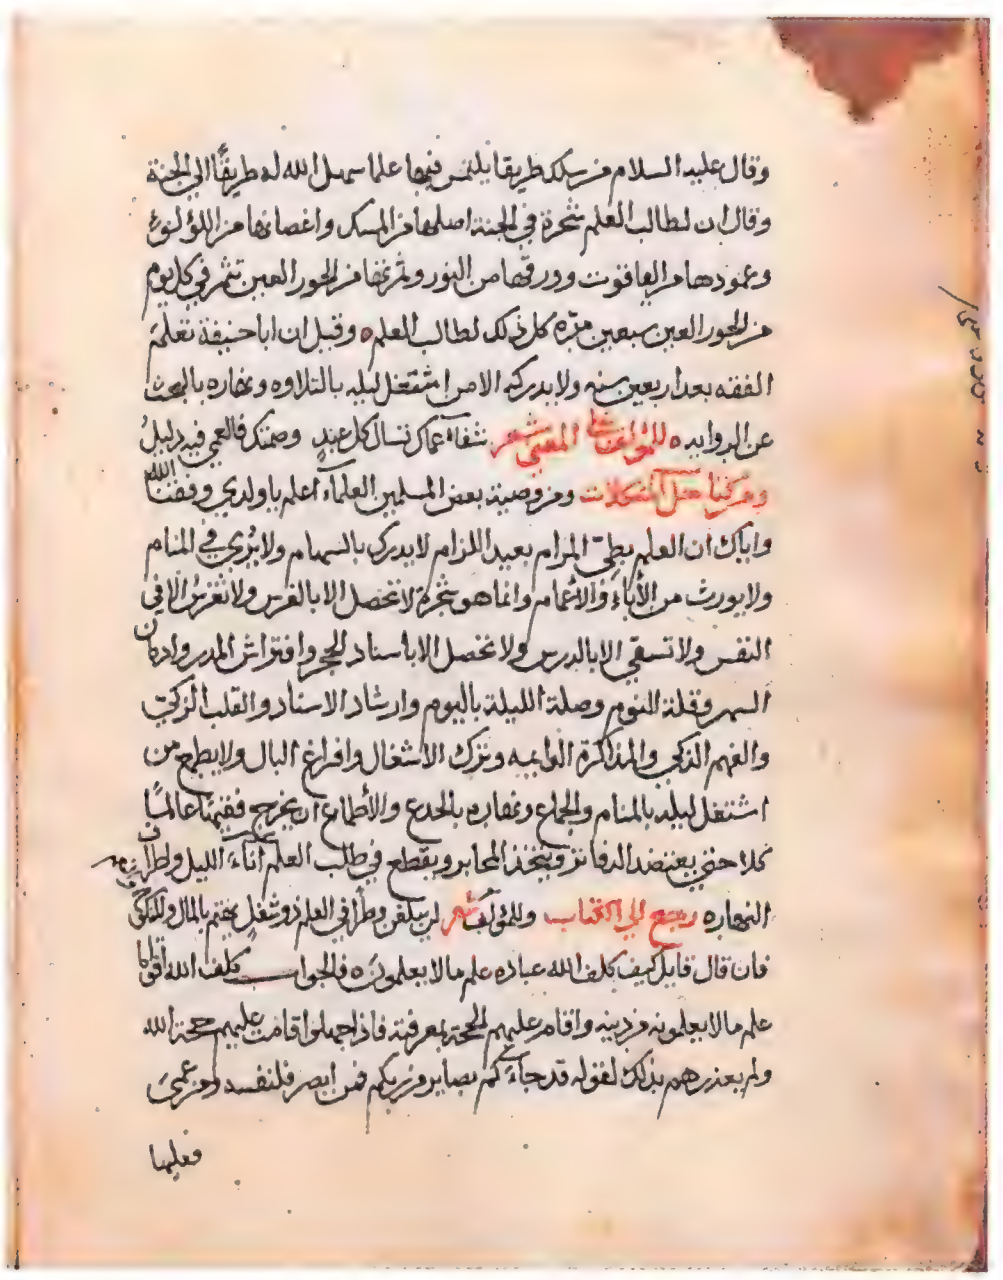 وقال عليه السلام من سلك طريقا يلتمس فيها علما سهل الله له طريقًا الي الجنة
وقال ان لطالب العلم شجرة في الجنة اصلها من المسك واغصانها من اللؤلؤ
وعمودها من الياقوت وورقها من النور وثمرتها من الحور العين تثمر في كل يوم
من الحور العين سبعين مرّة كل ذلك لطالب العلم ه وقيل ان ابا حنيفة تعلّم
الفقه بعد اربعين سنه ولا يدركه الا من اشتغل ليله بالتلاوه ونهاره بالبحث
عن الروايه ه للمؤلف المعنى شعر شفاء عماك تسال كل عبدٍ وصمتك في العمي فيه دليلُ
ومن وصية بعض المسلمين العلماء اعلم يا ولدي وفقنا الله
واياك ان العلم بطيّ المرام بعيد المرام لا يدرك بالسهام ولا يُرَى في المنام
ولا يورث من الأباء والأعمام وانما هو شجرة لا تحصل الا بالغرس ولا تغرسُ الا في
النفس ولا تسقي الا بالدرس ولا تحصل الا باسناد الحجر وافتراش المدر وادمان
السهر وقلة النوم وصلة الليلة باليوم وارشاد الاستاد والقلب الزكيّ
والفهم الذكي والمذاكرة الدايمه وترك الاشغال وافراغ البال ولا يطمع من
اشتغل ليله بالمنام والجماع ونهاره بالخدع والأطماع ان يخرج فقيهًا عالمًا
كلا حتى يعتضد الدفاتر ويتخذ المحابر ويقطع في طلب العلم آناء الليل واطراف
النهار ه رجع الي الكتاب وللمؤلف شعر لن يبلغن وطرا في العلم ذو شغلٍ يهتم بالمال
فان قال قايل كيف كلف الله عباده علم ما لا يعلمون ه فالجواب كلف الله أقواما
علم ما لا يعلمونه من دينه واقام عليهم الحجة بمعرفته فاذا جهلوا قامت عليهم حجة الله
ولم يعذرهم بذلك لقوله قد جاءكم بصاير من ربكم فمن ابصر فلنفسه ومن عمي
فعليها